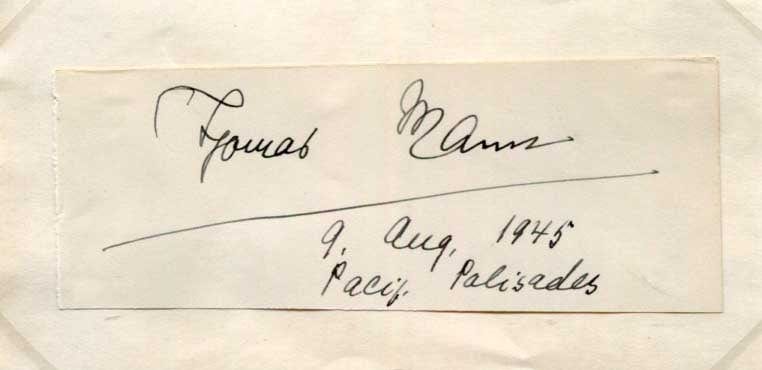 Thomas Mann
9. Aug. 1945
Pacif. Palisades